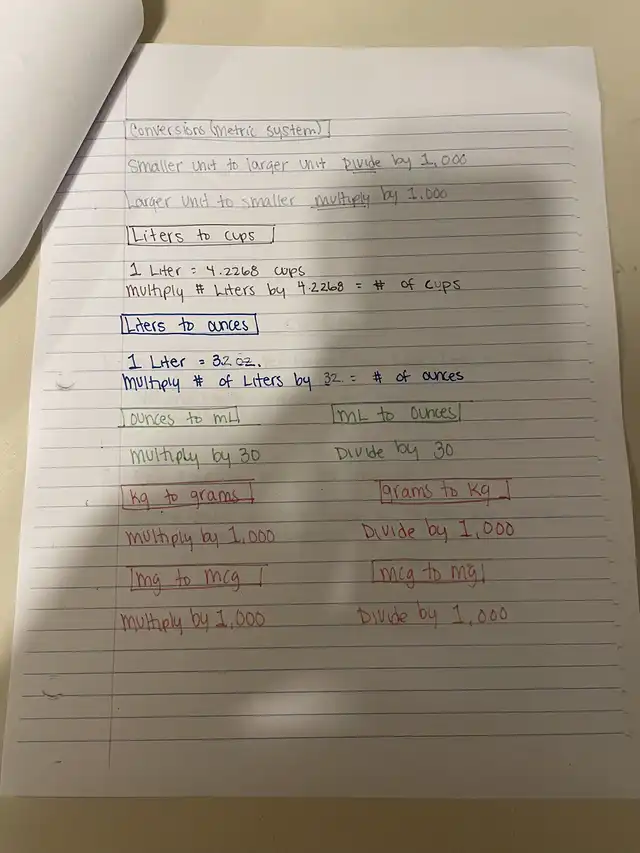 Conversions (metric system)
Smaller unit to larger unit Divide by 1,000
Larger unit to smaller multiply by 1,000
Liters to cups
1 Liter = 4.2268 cups
multiply # Liters by 4.2268 = # of cups
Liters to ounces
1 Liter = 32 oz.
Multiply # of Liters by 32 = # of ounces
ounces to mL mL to ounces
multiply by 30 Divide by 30
kg to grams grams to kg
multiply by 1,000 Divide by 1,000
mg to mcg mcg to mg
multiply by 1,000 Divide by 1,000